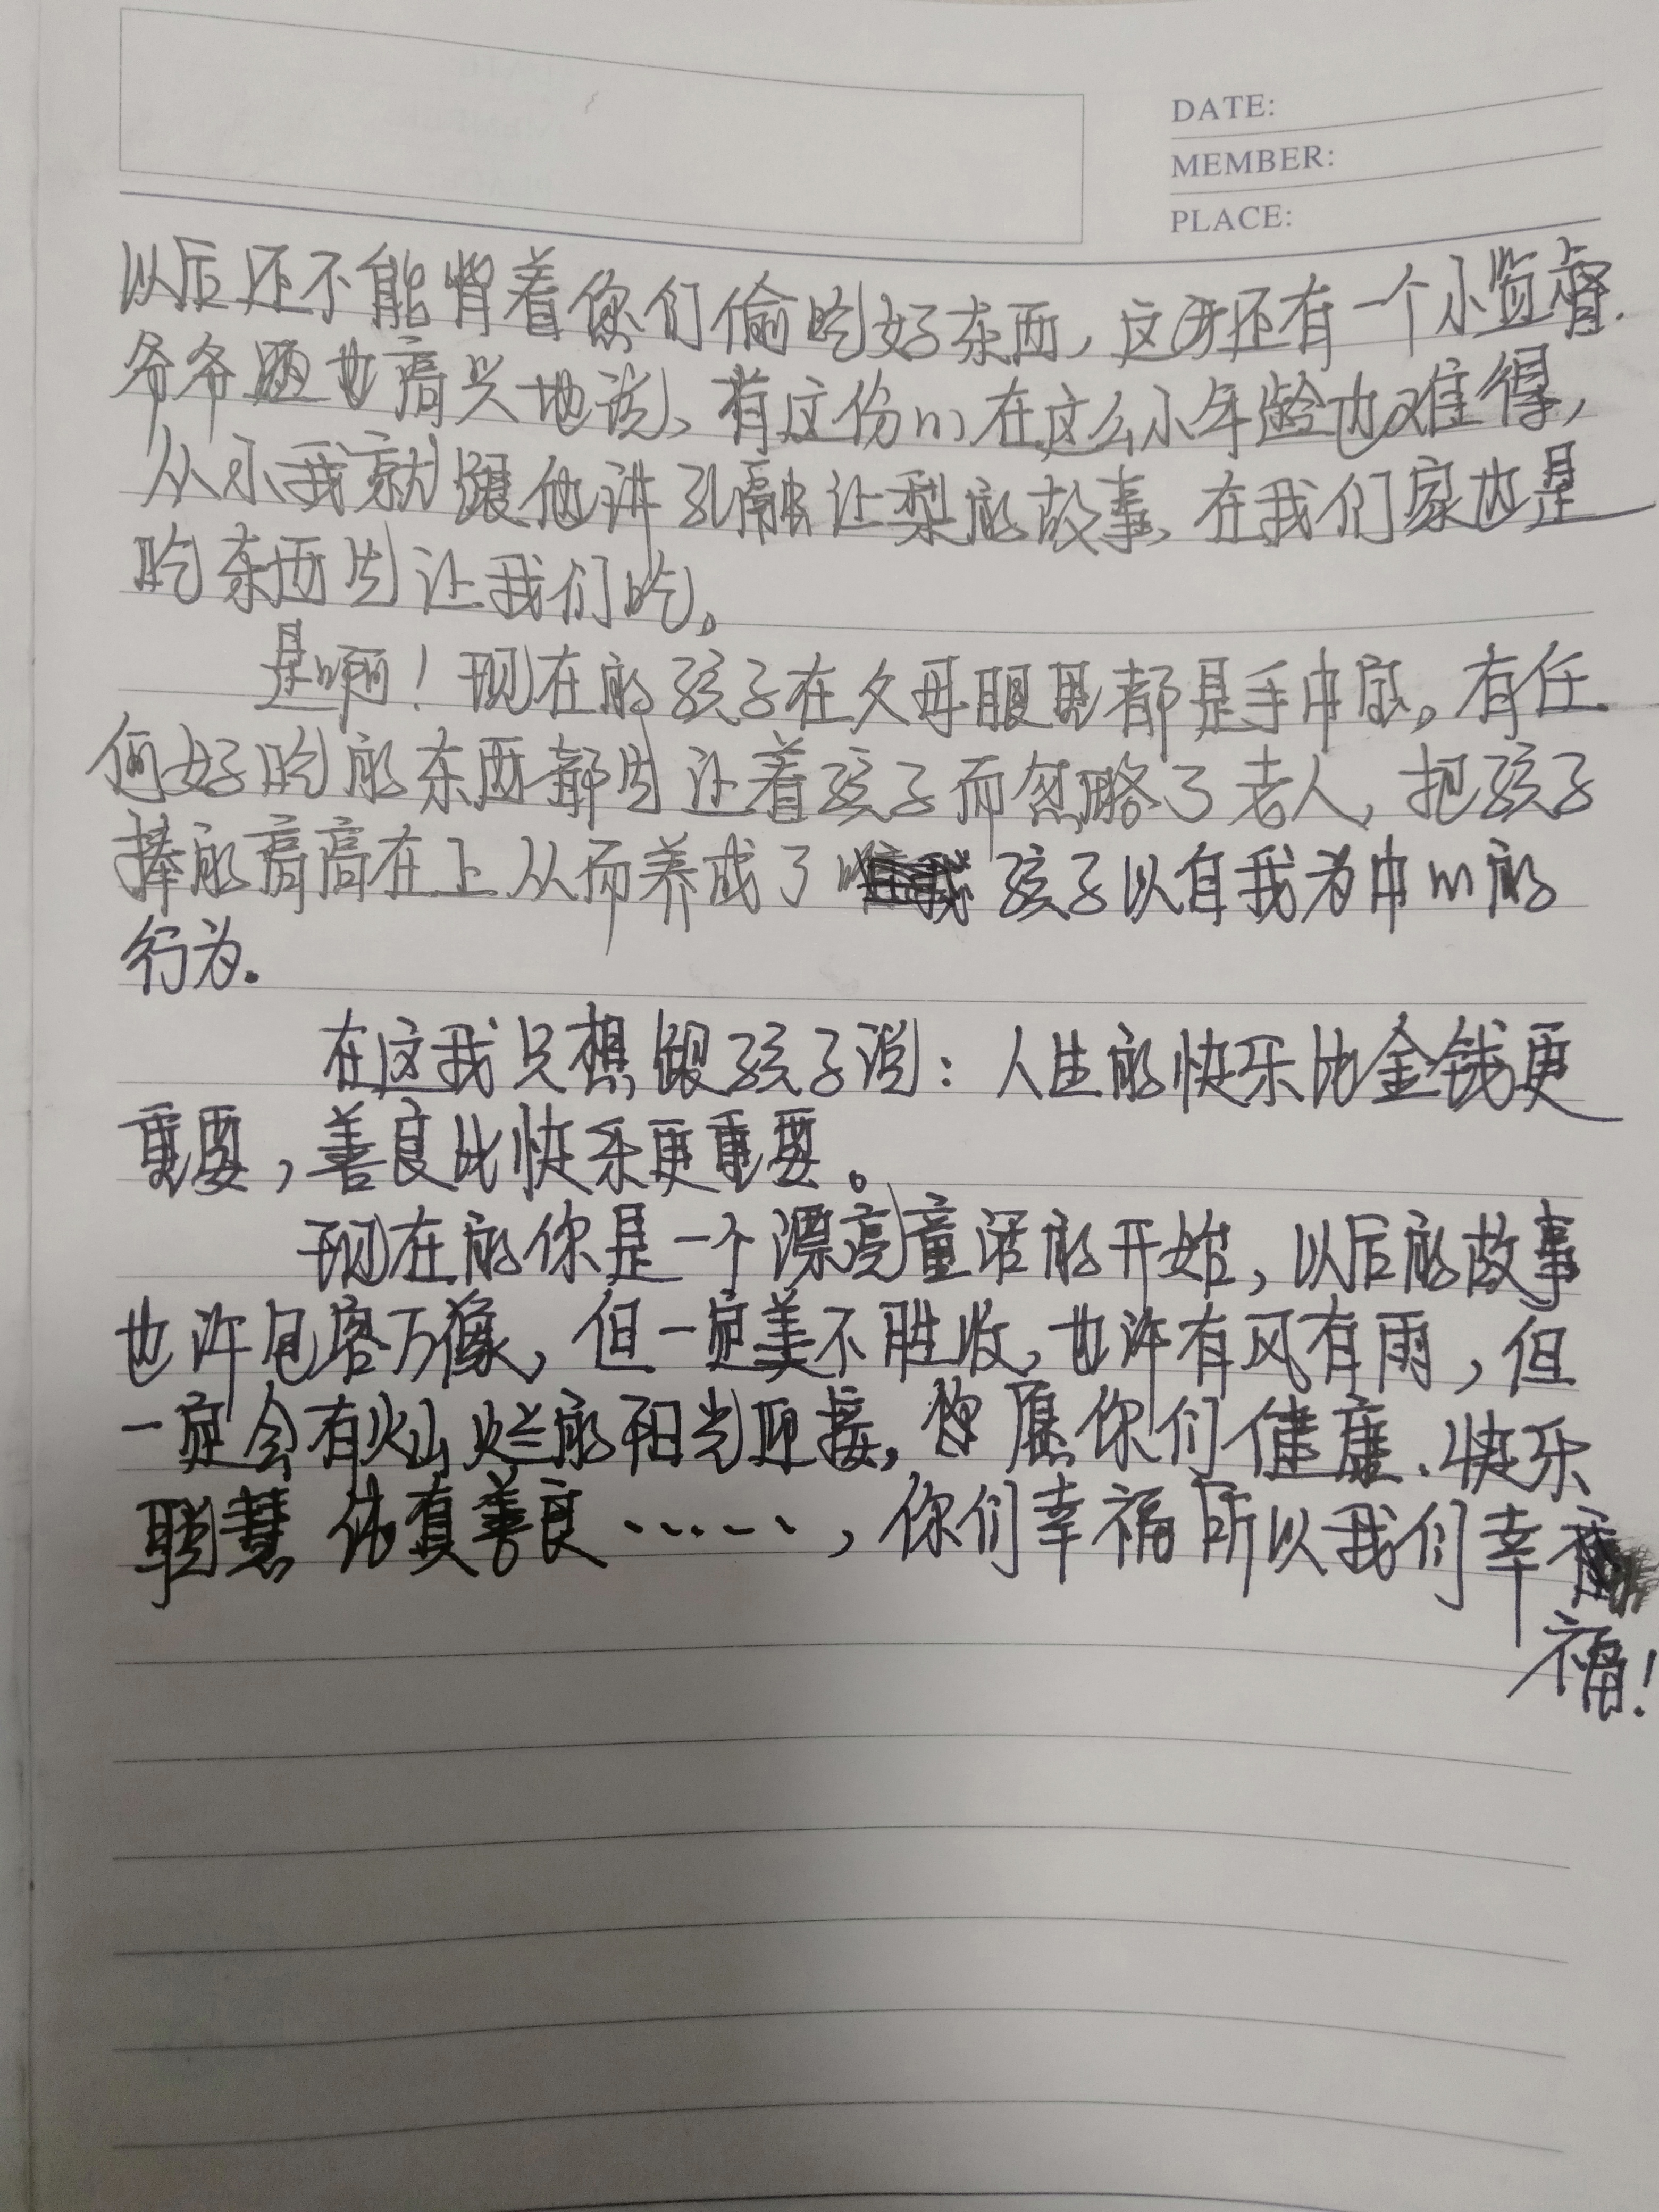 DATE:
MEMBER:
PLACE:
以后还不能背着你们偷吃好东西,这可还有一个小监督.
爷爷也高兴地说、有这份心在这么小年龄也难得,
从小我就跟他讲孔融让梨的故事、在我们家也是
吃东西先让我们吃。
是啊!现在的孩子在父母眼里都是手中宝。有任
何好吃的东西都先让着孩子而忽略了老人,把孩子
捧的高高在上从而养成了孩子以自我为中心的
行为.
在这我只想跟孩子说:人生的快乐比金钱更
重要,善良比快乐更重要。
现在的你是一个漂亮童话的开始,以后的故事
也许包容万像,但一定美不胜收,也许有风有雨,但
一定会有灿烂的阳光迎接,愿你们健康、快乐
聪慧 纯真善良……,你们幸福所以我们幸
福!